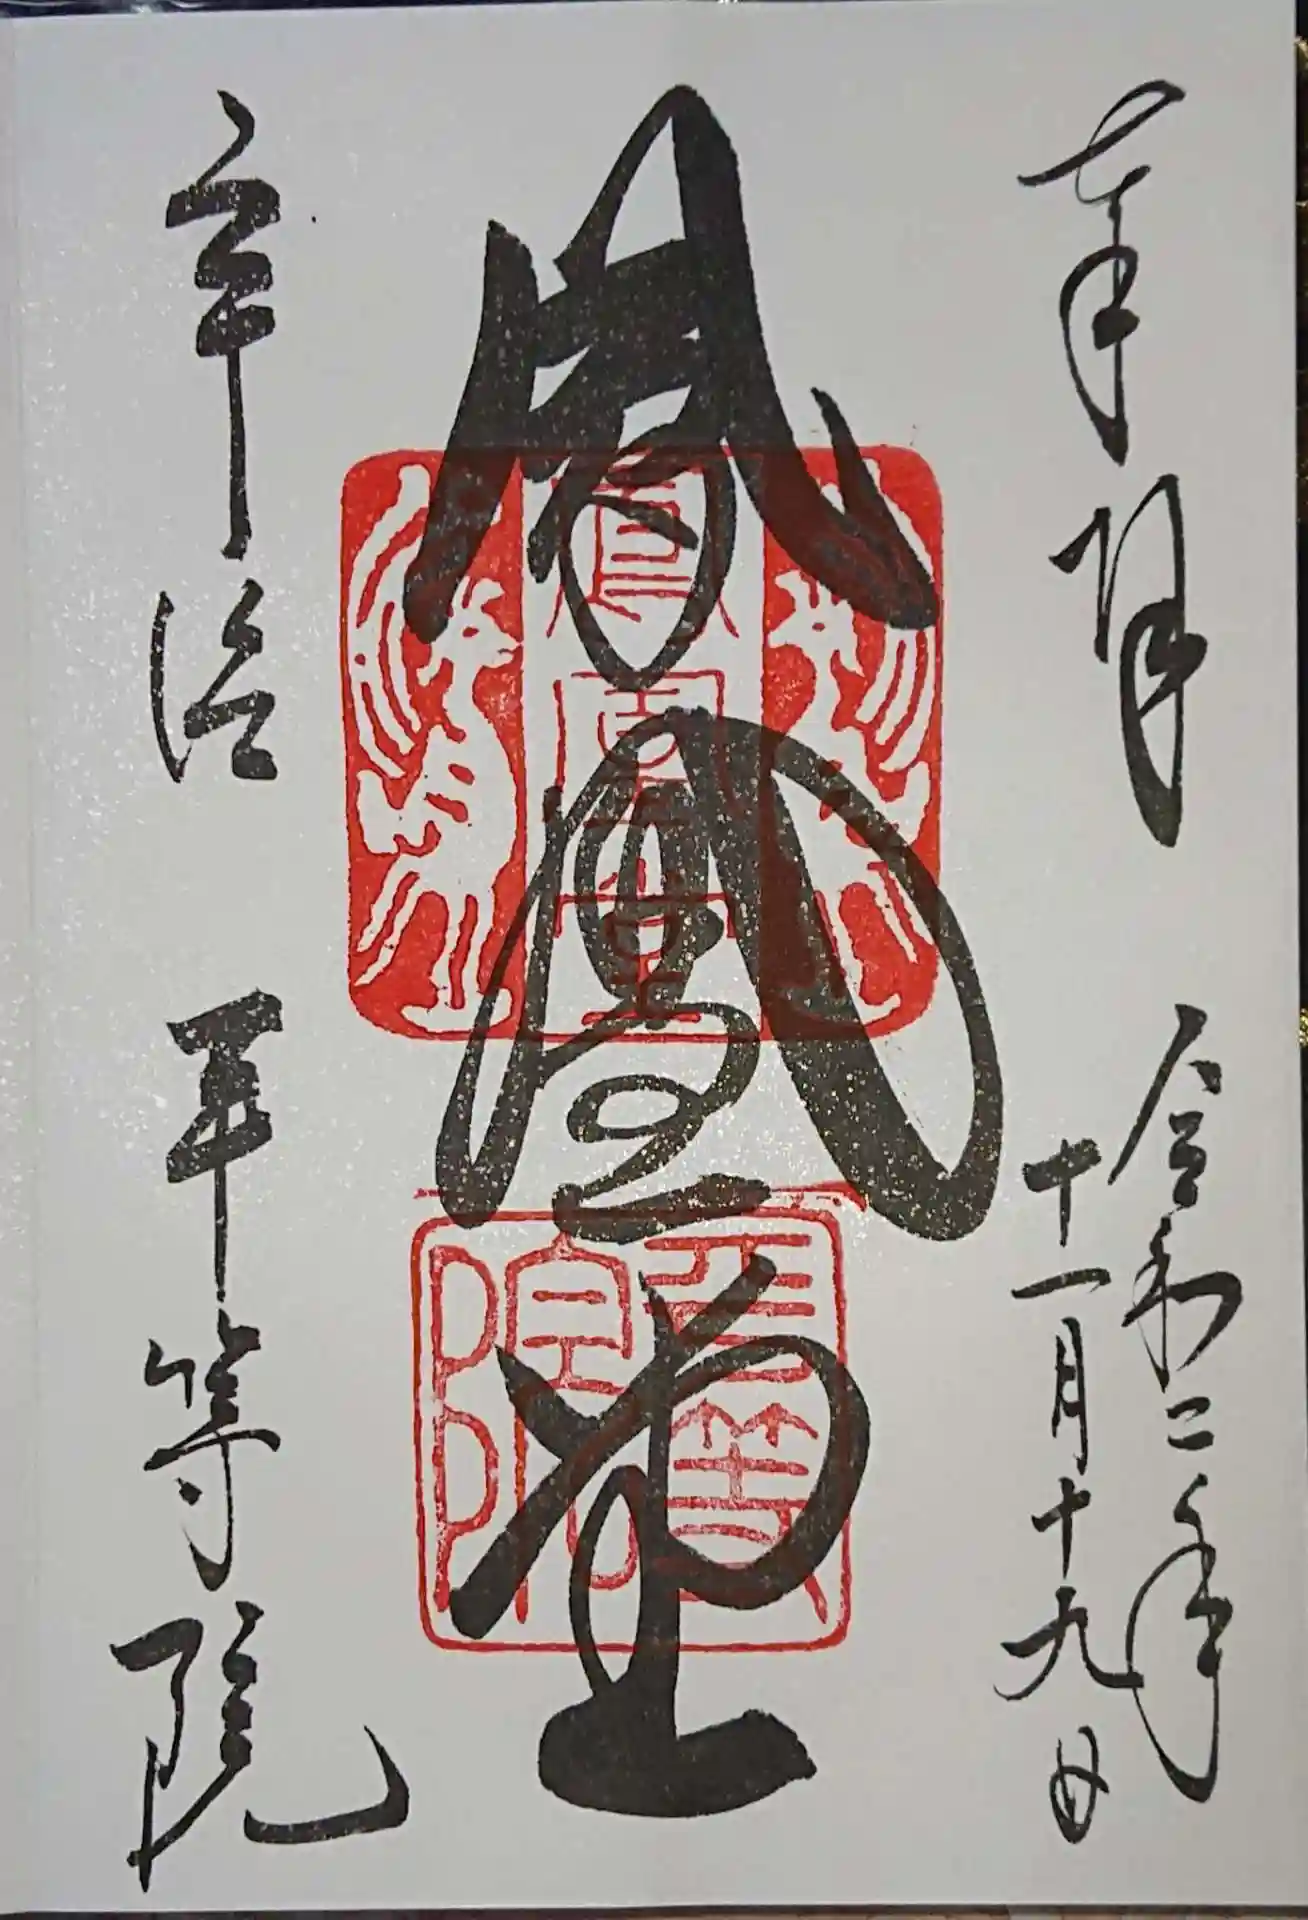 奉拝
令和二年
十一月十九日
鳳凰堂
鳳凰堂
平等院
宇治
平等院